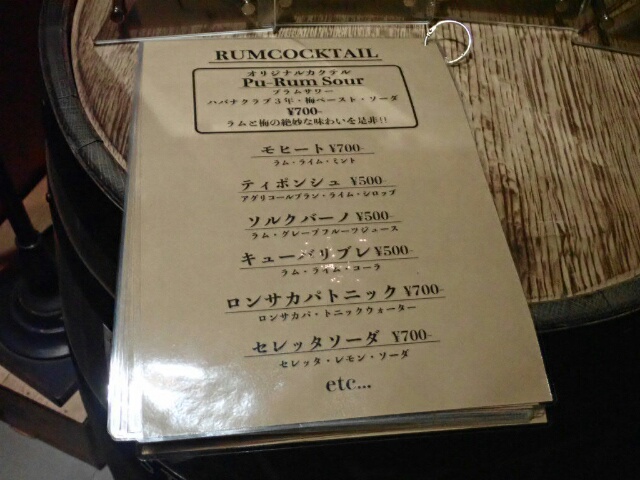 RUMCOCKTAIL
オリジナルカクテル
Pu-Rum Sour
プラムサワー
ハバナクラブ3年・梅ペースト・ソーダ
¥700-
ラムと梅の絶妙な味わいを是非!!
モヒート ¥700-
ラム・ライム・ミント
ティポンシュ ¥500-
アグリコールブラン・ライム・シロップ
ソルクバーノ ¥500-
ラム・グレープフルーツジュース
キューバリブレ ¥500-
ラム・ライム・コーラ
ロンサカパトニック ¥700-
ロンサカパ・トニックウォーター
セレッタソーダ ¥700-
セレッタ・レモン・ソーダ
etc...